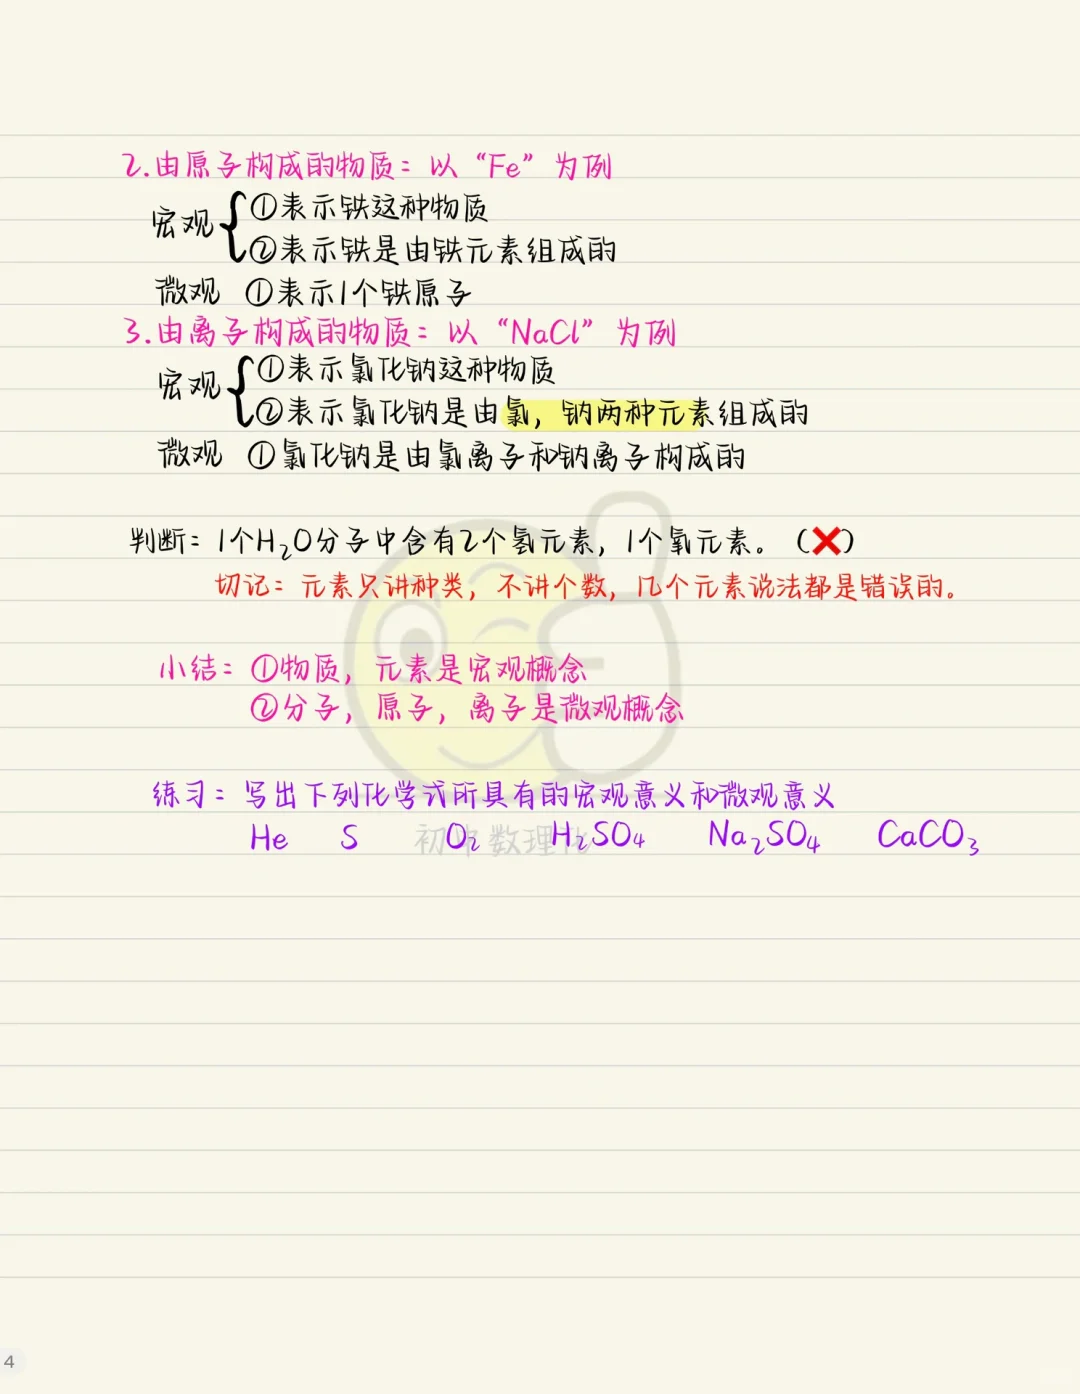 2.由原子构成的物质：以“Fe”为例
宏观{①表示铁这种物质
②表示铁是由铁元素组成的
微观 ①表示1个铁原子
3.由离子构成的物质：以“NaCl”为例
宏观{①表示氯化钠这种物质
②表示氯化钠是由氯，钠两种元素组成的
微观 ①氯化钠是由氯离子和钠离子构成的
判断：1个H₂O分子中含有2个氢元素，1个氧元素。（❌）
切记：元素只讲种类，不讲个数，几个元素说法都是错误的。
小结：①物质，元素是宏观概念
②分子，原子，离子是微观概念
练习：写出下列化学式所具有的宏观意义和微观意义
He S O₂ H₂SO₄ Na₂SO₄ CaCO₃
初中数理化
4